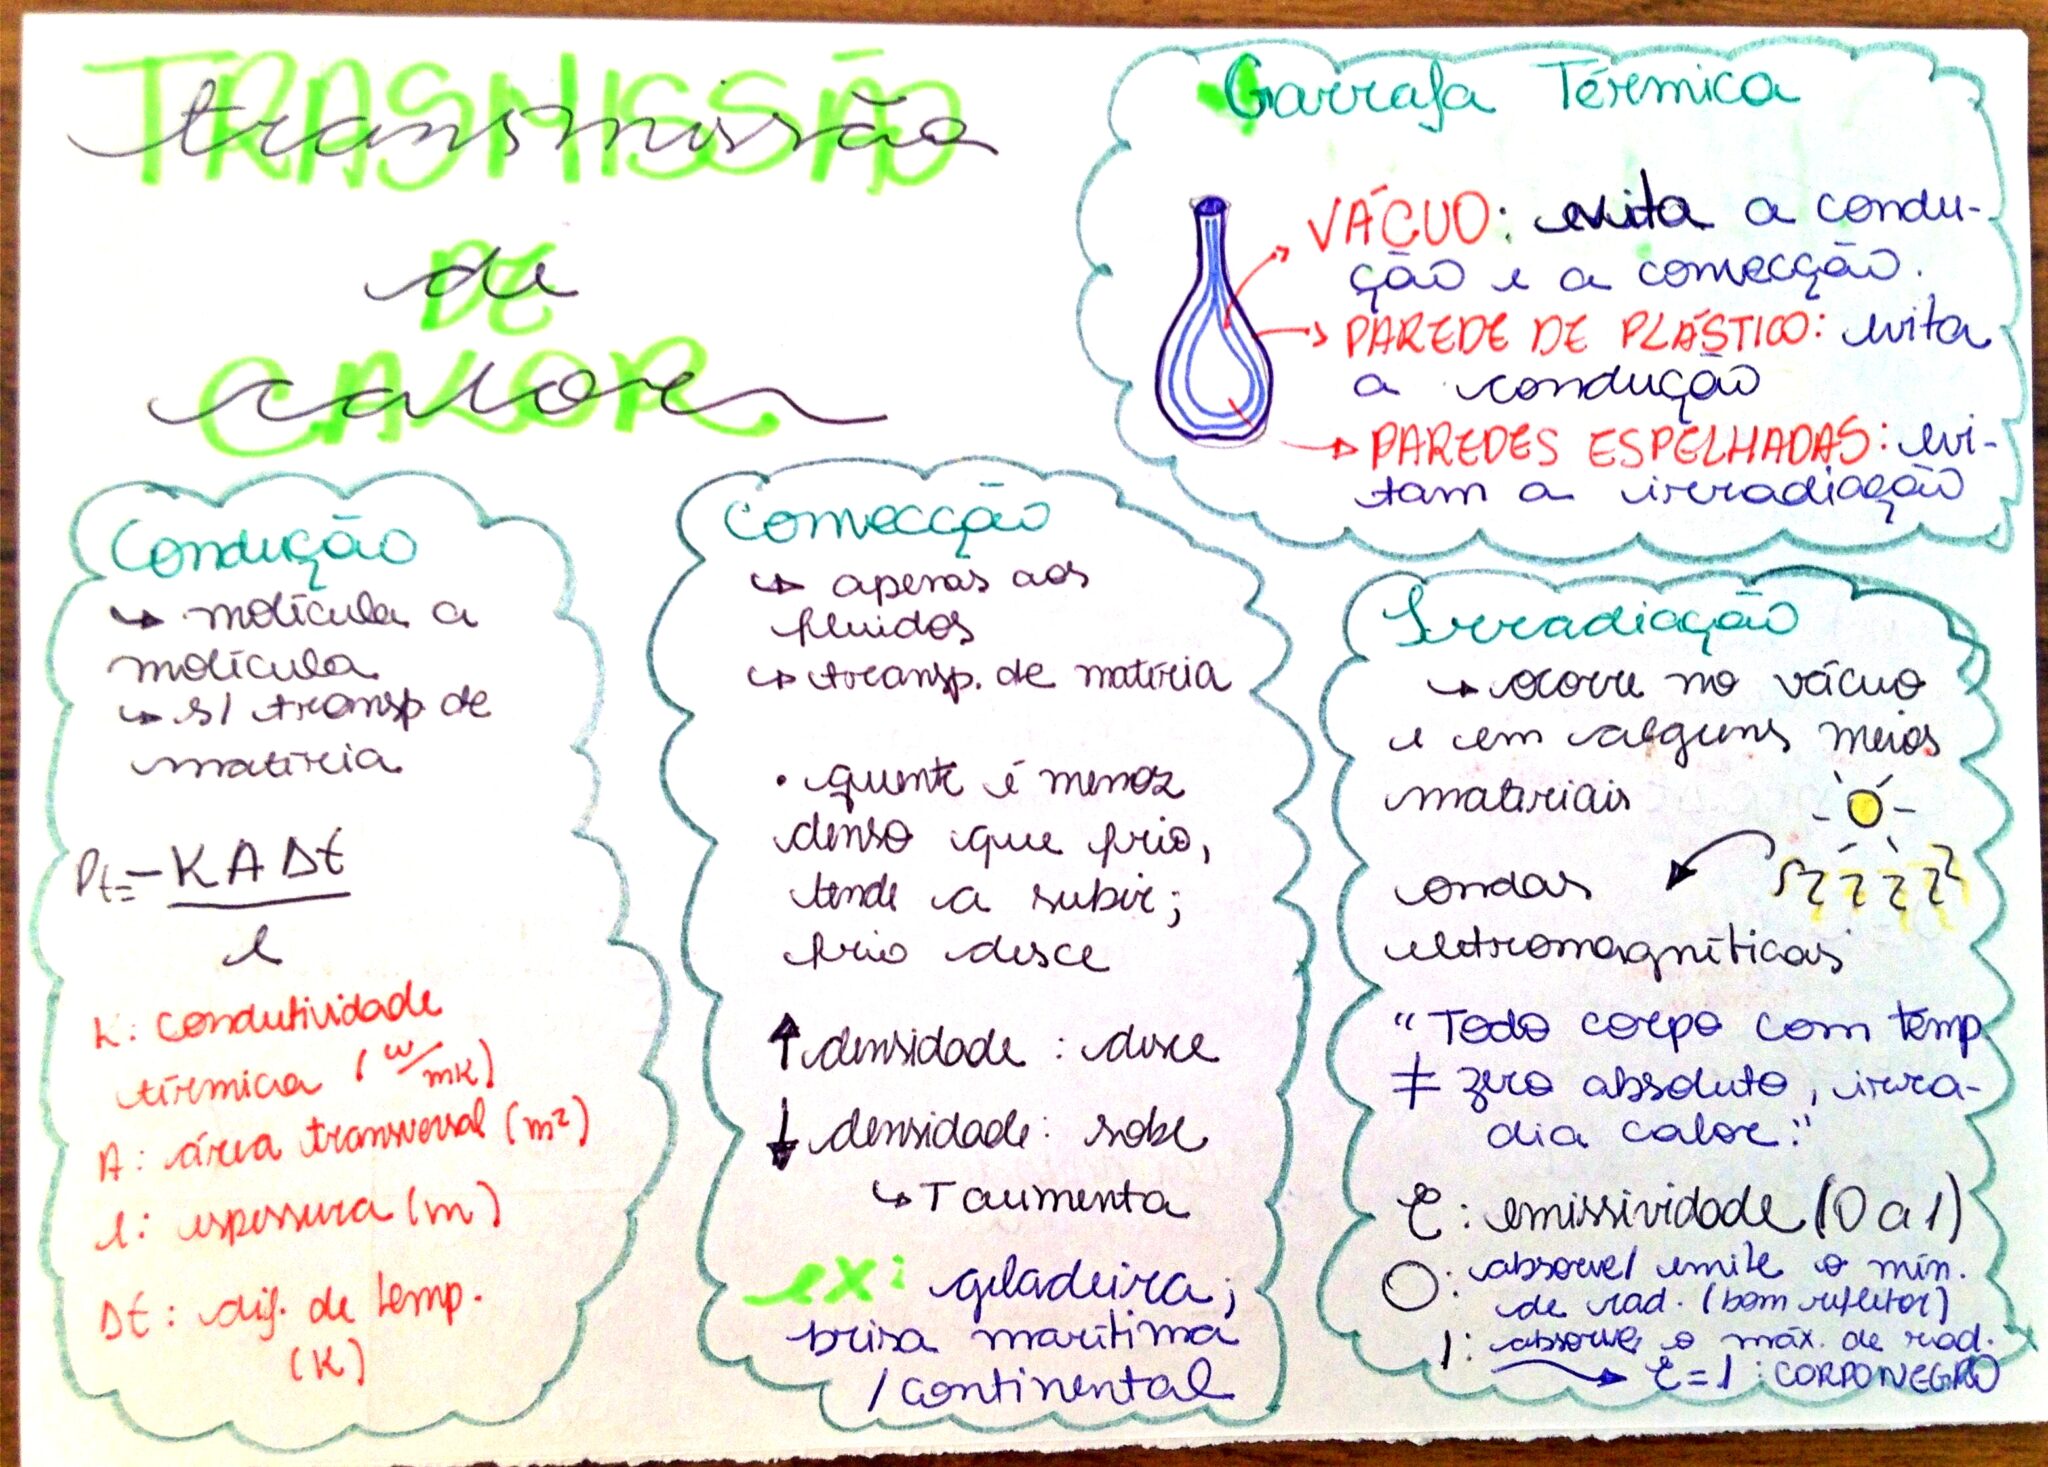 TRASMISSÃO
transmissão
DE
de
CALOR
calor
Garrafa Térmica
VÁCUO: evita a condu-
ção e a convecção.
PAREDE DE PLÁSTICO: evita
a condução
PAREDES ESPELHADAS: evi-
tam a irradiação
Condução
↳ molécula a
molécula
↳ s/ transp. de
matéria
Pt = - K A Δt
l
K: condutividade
térmica (W/mK)
A: área transversal (m²)
l: espessura (m)
Δt: dif. de temp.
(K)
Convecção
↳ apenas aos
fluidos
↳ transp. de matéria
• quente é menos
denso que frio,
tende a subir;
frio desce
↑ densidade: desce
↓ densidade: sobe
↳ T aumenta
ex: geladeira;
brisa marítima
/continental
Irradiação
↳ ocorre no vácuo
e em alguns meios
materiais
ondas
eletromagnéticas
"Todo corpo com temp
≠ zero absoluto, irra-
dia calor."
ε: emissividade (0 a 1)
0: absorve/emite o mín.
de rad. (bom refletor)
1: absorve o máx. de rad.
→ ε=1: CORPO NEGRO